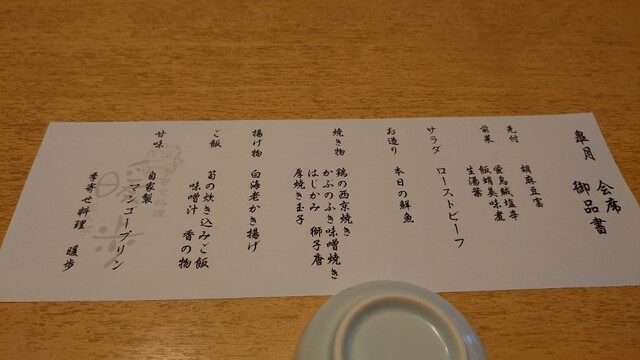 皐月 会席
御品書
先付
胡麻豆富
前菜
蛍烏賊塩辛
飯蛸美味煮
生湯葉
サラダ
ローストビーフ
お造り
本日の鮮魚
焼き物
鶏の西京焼き
かぶのふき味噌焼き
はじかみ 獅子唐
厚焼き玉子
揚げ物
白海老かき揚げ
ご飯
筍の炊き込みご飯
味噌汁 香の物
甘味
自家製
マンゴープリン
季寄せ料理 暖歩